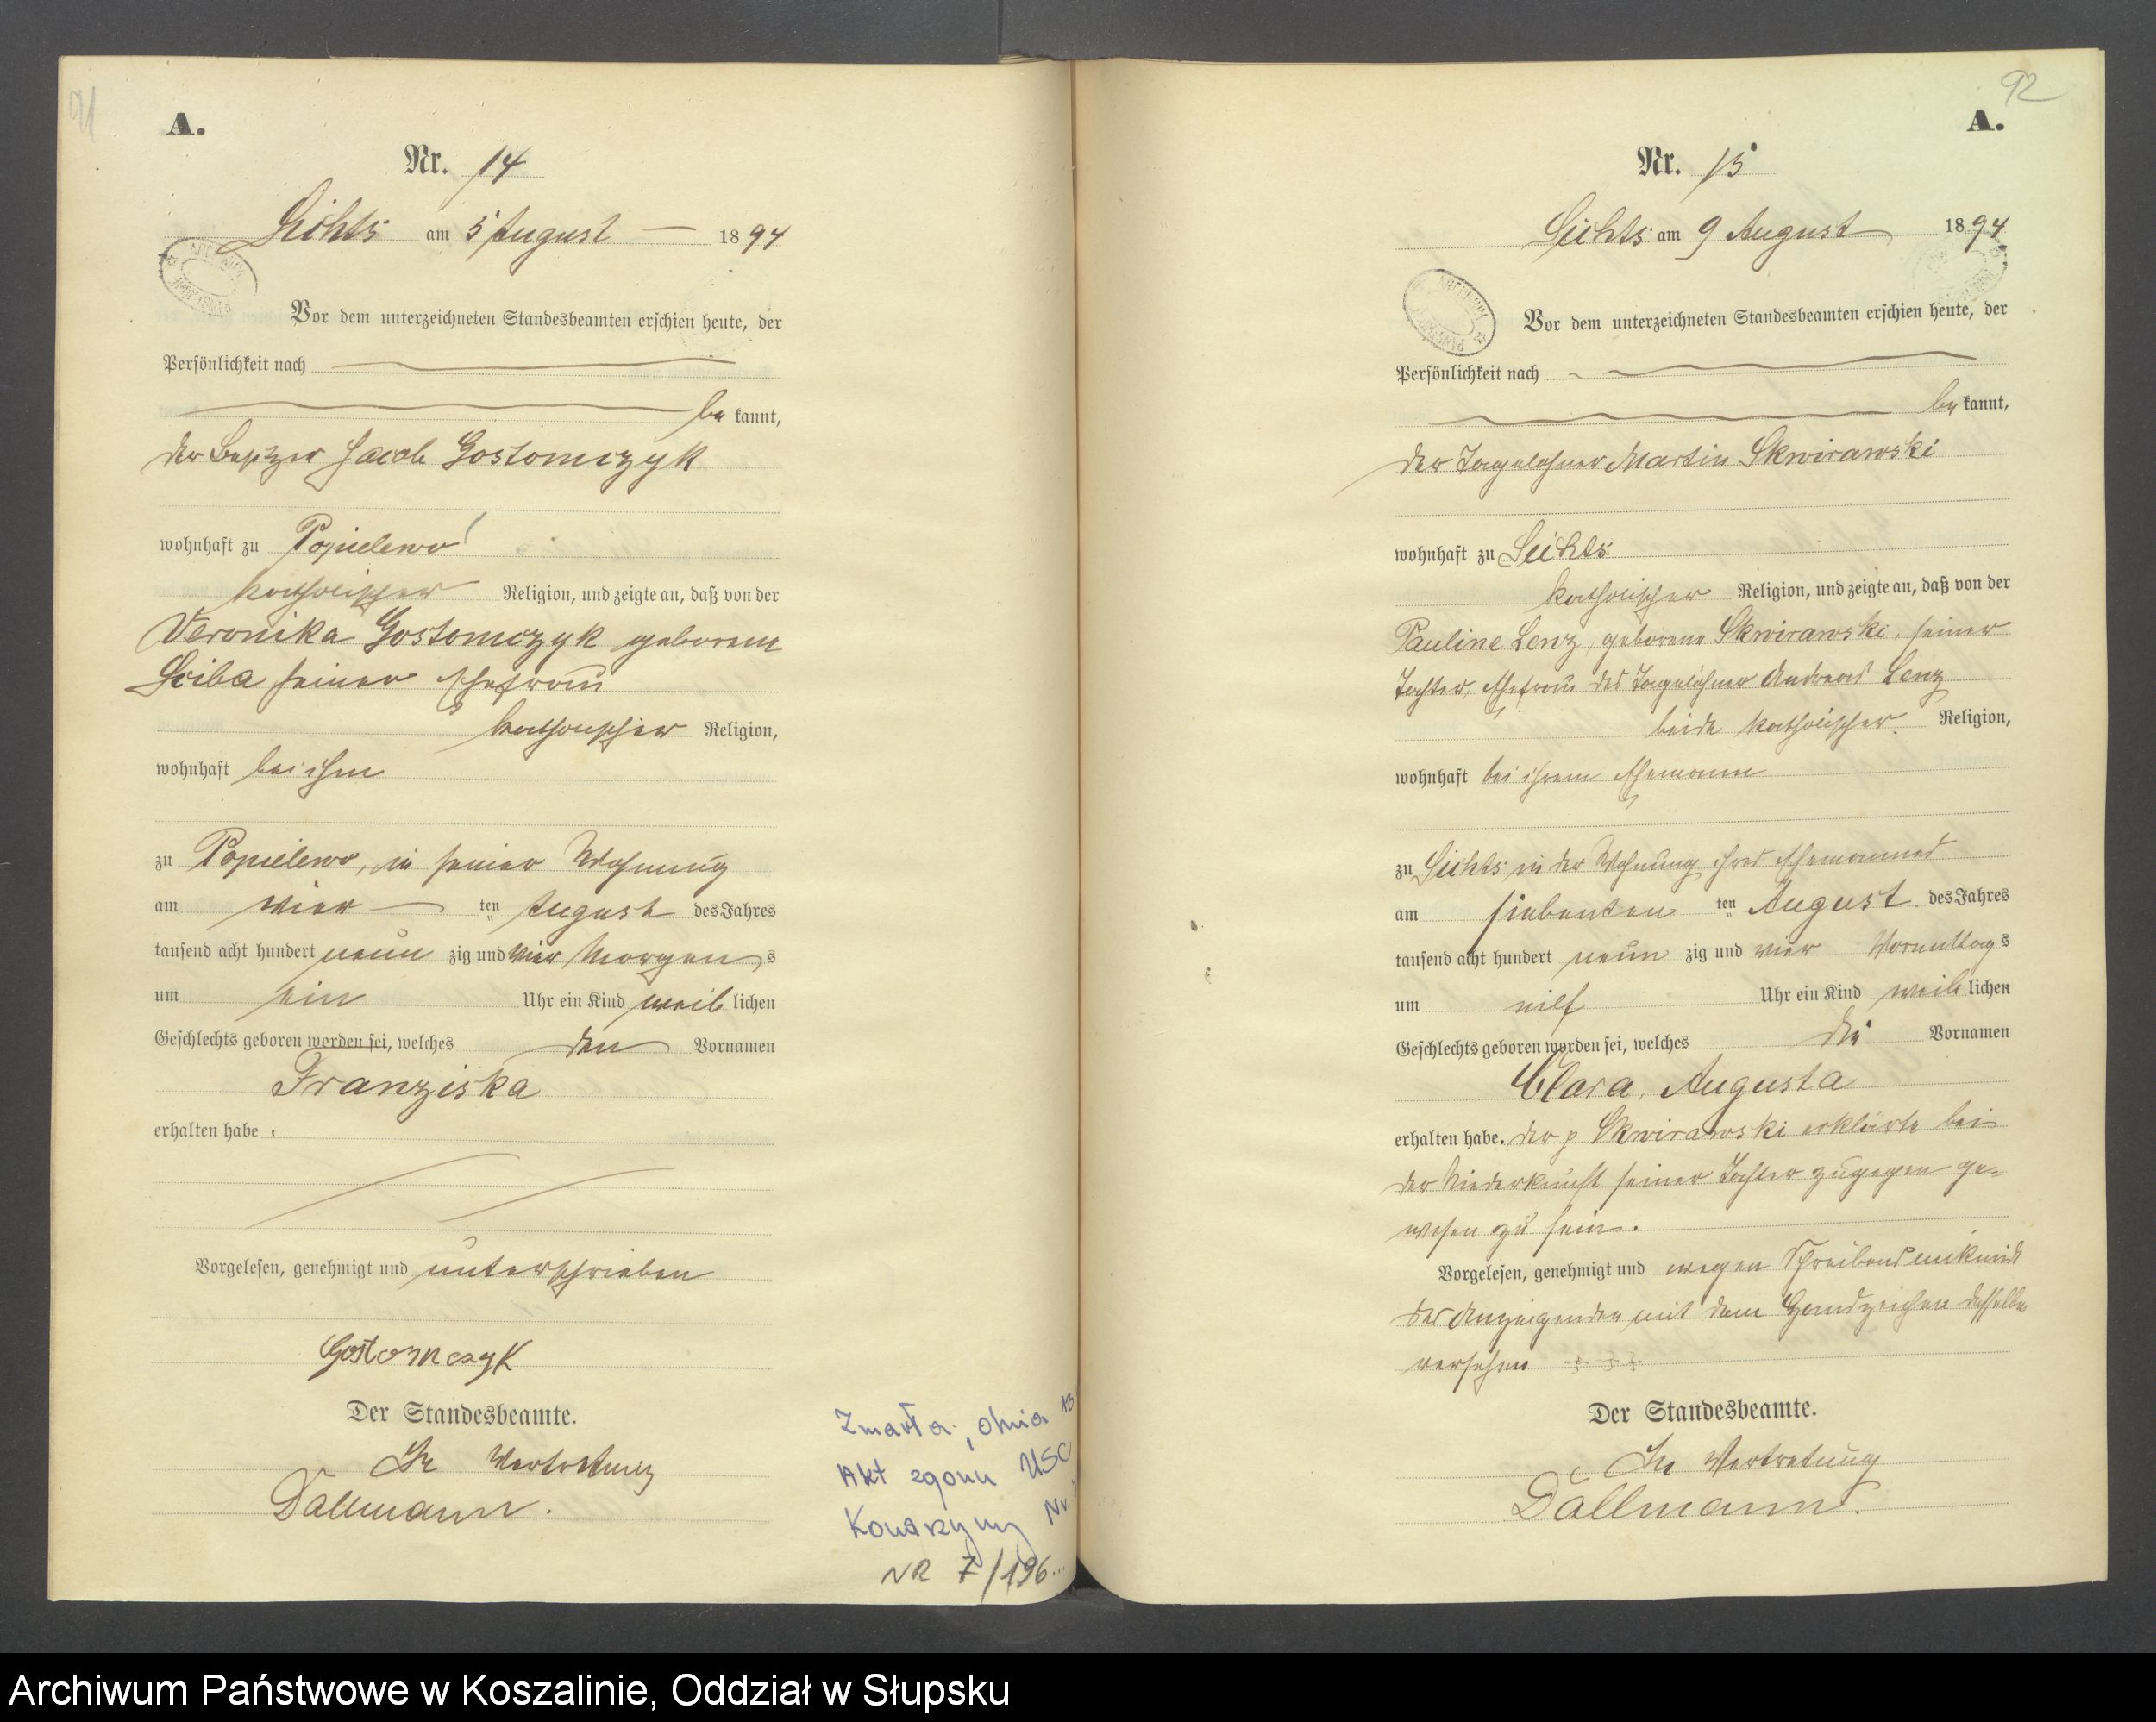 91
A.
Nr. 14
Lichts am 5 August 1894
Vor dem unterzeichneten Standesbeamten erschien heute, der
Persönlichkeit nach
be kannt,
der Besitzer Jacob Gostomczyk
wohnhaft zu Popielewo
katholischer Religion, und zeigte an, daß von der
Veronika Gostomczyk geborene
Sciba seiner Ehefrau
katholischer Religion,
wohnhaft bei ihm
zu Popielewo, in seiner Wohnung
am vier ten August des Jahres
tausend acht hundert neun zig und vier Morgens
um ein Uhr ein Kind weib lichen
Geschlechts geboren worden sei, welches den Vornamen
Franziska
erhalten habe.
Vorgelesen, genehmigt und unterschrieben
Gostomczyk
Der Standesbeamte.
In Vertretung
Dallmann.
Zmarła dnia 13
Akt zgonu USC
Konarzyny Nr.
NR 7/196...
92
A.
Nr. 15
Lichts am 9 August 1894
Vor dem unterzeichneten Standesbeamten erschien heute, der
Persönlichkeit nach
be kannt,
der Tagelöhner Martin Skwirawski
wohnhaft zu Lichts
katholischer Religion, und zeigte an, daß von der
Pauline Lenz, geborene Skwirawski, seiner
Tochter, Ehefrau des Tagelöhner Andreas Lenz
beide katholischer Religion,
wohnhaft bei ihrem Ehemann
zu Lichts in der Wohnung ihres Ehemannes
am siebenten ten August des Jahres
tausend acht hundert neun zig und vier Vormittags
um elf Uhr ein Kind weib lichen
Geschlechts geboren worden sei, welches die Vornamen
Clara, Augusta
erhalten habe. der p Skwirawski erklärte bei
der Niederkunft seiner Tochter zugegen ge-
wesen zu sein.
Vorgelesen, genehmigt und wegen Schreibensunkunde
des Anzeigenden mit dem Handzeichen desselben
versehen + + +
Der Standesbeamte.
In Vertretung
Dallmann.
Archiwum Państwowe w Koszalinie, Oddział w Słupsku